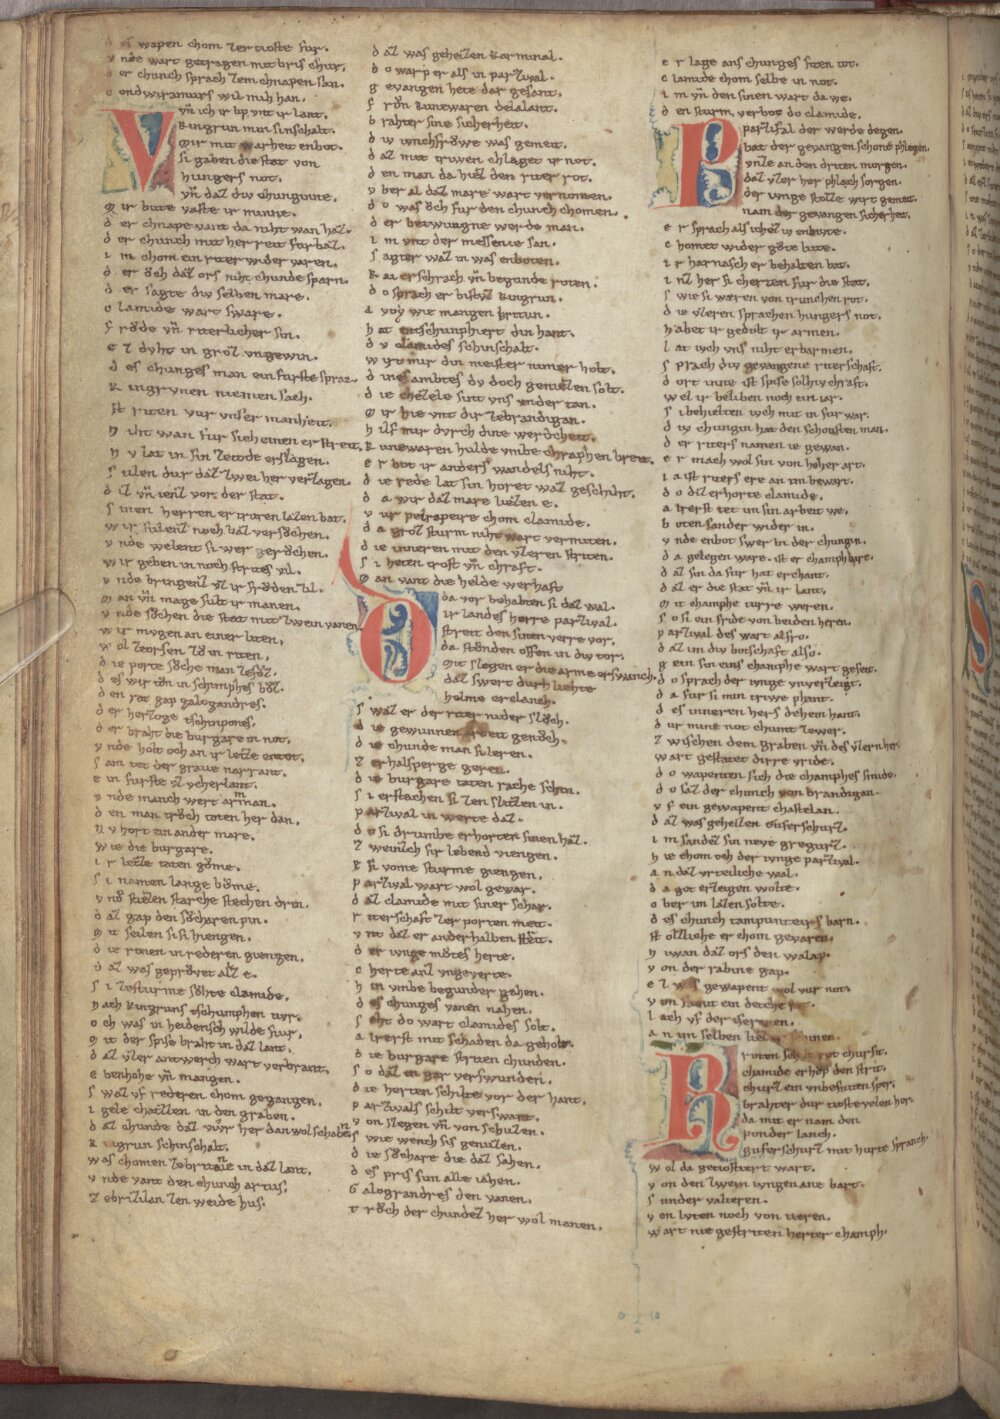 d es wapen chom zer tiofte fur.
v nde wart getragen mit bris chur.
d er chunch sprach zem chnapen san.
c ondwiramurs wil mih han.
V n ich ir lip vnt ir lant.
kingrun min sinschalt.
mir mit warheit enbot.
si gaben die stat von
hungers not.
vn daz div chunginne.
m ir bute vaste ir minne.
d er chnape vant da niht wan haz.
d er chunch mit her reit fur baz.
i m chom ein riter wider varen.
d er och daz ors niht chunde sparn.
d er sagte div selben mare.
c lamide wart sware.
f rode vn riterlicher sin.
e z dvht in groz vngewin.
d es chunges man ein furste sprac.
k ingrvnen niemen sach.
st riten vur vnser manheit.
n iht wan fur sich einen er streit.
n v lat in sin ze tode erslagen.
s ulen dur daz zwei her verzagen.
d iz vn ienz vor der stat.
s inen herren er truren lazen bat.
w ir sulenz noch baz versochen.
v nde welent si wer gerochen.
w ir geben in noch strites vil.
v nde bringenz vz ir froden zil.
m an vn mage sult ir manen.
v nde sochen die stat mit zwein vanen
w ir mvgen an einer liten.
w ol ze orsen zo in riten.
d ie porte soche man ze foz.
d es wir ton in schimphes boz.
d en rat gap galogandres.
d er herzoge tschinpones.
d er braht die burgare in not.
v nde holt och an ir letze en tot.
s am tet der graue narrant.
e in furste vz vcherlant.
v nde manch wert arman.
d en man troch toten her dan.
n v hort ein ander mare.
w ie die burgare.
i r letze taten gome.
s i namen lange bome.
v nd stiezen starche stechen drin.
d az gap den socharen pin.
m it seilen si si hiengen.
d ie ronen in rederen giengen.
d az was geprovet allz e.
s i ze sturme sohte clamide.
n ach kingruns tschumphentivr.
o ch was in heidensch wilde fiur.
m it der spise braht in daz lant.
d az vzer antwerch wart verbrant.
e benhohe vn mangen.
s waz vf rederen chom gegangen.
i gele chatzen in den graben.
d az chunde daz viur her dan wol schaben
k ingrun schinschalt.
was chomen ze brittanie in daz lant.
v nde vant den chunch artus.
z ebrizilan zen weide hus.
d az was geheizen karminal.
d o warp er als in parzival.
g evangen hete dar gesant.
f ron kunewaren delalant.
b rahter sine sicherheit.
d iv ivnchfrowe was gemeit.
d az mit triwen chlaget ir not.
d en man da hiez den riter rot.
v ber al daz mare wart vernomen.
d o was och fur den chunch chomen.
d er betwungne werde man.
i m vnt der messenie san.
s agter waz in was enboten.
k ai erschrach vn begunde roten.
d o sprach er bistuz kingrun.
a voy wie mangen britun.
h at entschunphiert din hant.
d v clamides schinschalt.
w irt mir din meister nimer holt.
d ines ambtes dv doch geniezen solt.
d ie chezzele sint vns vnder tan.
m ir hie vnt dir ze brandigan.
h ilf mir dvrch dine werdcheit.
k unewaren hulde vmbe chraphen breit.
e r bot ir anders wandels niht.
d ie rede lat sin horet waz geschiht.
d a wir daz mare liezen e.
v ur pelrapeire chom clamide.
d a groz sturm niht wart vermiten.
d ie inneren mit den vzeren striten.
s i heten trost vn chraft.
m an vant die helde werhaft
D a vor behabten si daz wal.
ir landes herre parzival.
streit den sinen verre vor.
da stonden offen in div tor.
Mit slegen er die arme erswanch.
daz swert durh liehte
helme er clanch.
s waz er der riter nider sloch.
d ie gewunnen arbeit genoch.
d ie chunde man si leren.
z er halsperge geren.
d ie burgare taten rache schin.
s i erstachen si zen slitzen in.
p arzival in werte daz.
d o si drumbe erhorten sinen haz.
z weinzich sir lebend viengen.
e si vome sturme giengen.
p arzival wart wol gewar.
d az clamide mit siner schar.
r iterschaft zer porten meit.
v nt daz er anderhalben streit.
d er ivnge motes herte.
c herte anz vngeverte.
h in vmbe begunder gahen.
d es chunges vanen nahen.
s eht do wart clamides solt.
a lrerst mit schaden da geholt.
d ie burgare striten chunden.
s o daz en gar verswunden.
d ie herten schilte vor der hant.
p arzivals schilt verswant.
v on slegen vn von schuzen.
s wie wench sis genuzen.
d ie sochare die daz sahen.
d es pris sun alle iahen.
G alograndres den vanen.
t roch der chundez her wol manen.
e r lage ans chunges siten tot.
c lamide chom selbe in not.
i m vn den sinen wart da we.
d en sturm verbot do clamide.
P arzifal der werde degen.
bat der gevangen schone phlegen
vnze an den driten morgen.
daz vzer her phlach sorgen.
der ivnge stolze wirt gemeit.
nam der gevangen sicherheit.
e r sprach als ichez iv enbivte.
c homet wider gote livte.
i r harnasch er behalten bat.
i nz her si cherten fur die stat.
s wie si waren von trunchen rot.
d ie vzeren sprachen hungers not.
h abet ir gedolt ir armen.
l at ivch vns niht erbarmen.
s prach div gevangene riterschaft.
d ort inne ist spise solhiv chraft.
w el ir beliben noch ein iar.
s i behielten ivch mit in fur war.
d iv chungin hat den schonsten man.
d er riters namen ie gewan.
e r mach wol sin von hoher art.
i a ist riters ere an im bewart.
d o diz erhorte clamide.
a lrerst tet im sin arbeit we.
b oten sander wider in.
v nde enbot swer bi der chungin.
d a gelegen ware. ist er champhbere.
d az sin da fur hat erchant.
d az er die stat vn ir lant.
m it champhe turre weren.
s o si ein fride von beiden heren.
p arzival des wart alfro.
d az im div botschaft also.
g ein sin eins champhe wart geseit.
d o sprach der ivnge vnverzeigt.
d a fur si min triwe phant.
d es inneren hers deheim hant.
d ur mine not chumt ze wer.
z wischen dem graben vn des vzern her.
wart gestatet dirre vride.
d o wapenten sich die champhes smide.
d o saz der chunch von brandigan.
v f ein gewapent chastelan.
d az was geheizen Guferschurz.
i m sandez sin neve gregurz.
h ie chom och der ivnge parzival.
a n daz vrteiliche wal.
d a got erzeigen wolte.
o ber im lazen solte.
d es chunch tampunteirs barn.
st olzliche er chom gevaren.
n iwan daz ors den walap.
v on der rabine gap.
e z was gewapent wol vur not.
v on samit ein deche rot.
l ach vf der iserinen.
a n im selben liez er schinen.
R oten schilt rot chursit.
clamide erhop den strit.
churz ein vnbesniten sper.
brahter dur tioste velen her.
da mit er nam den
ponder lanch.
guferschurz mit hurte spranch.
w ol da getiostiert wart.
v on den zwein ivngen ane bart.
s under valieren.
v on livten noch von tieren.
wart nie gestriten herter champh.